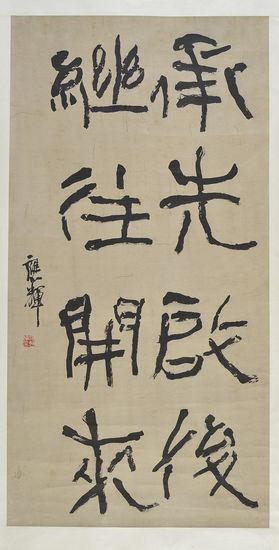 承先啟後
繼往開來